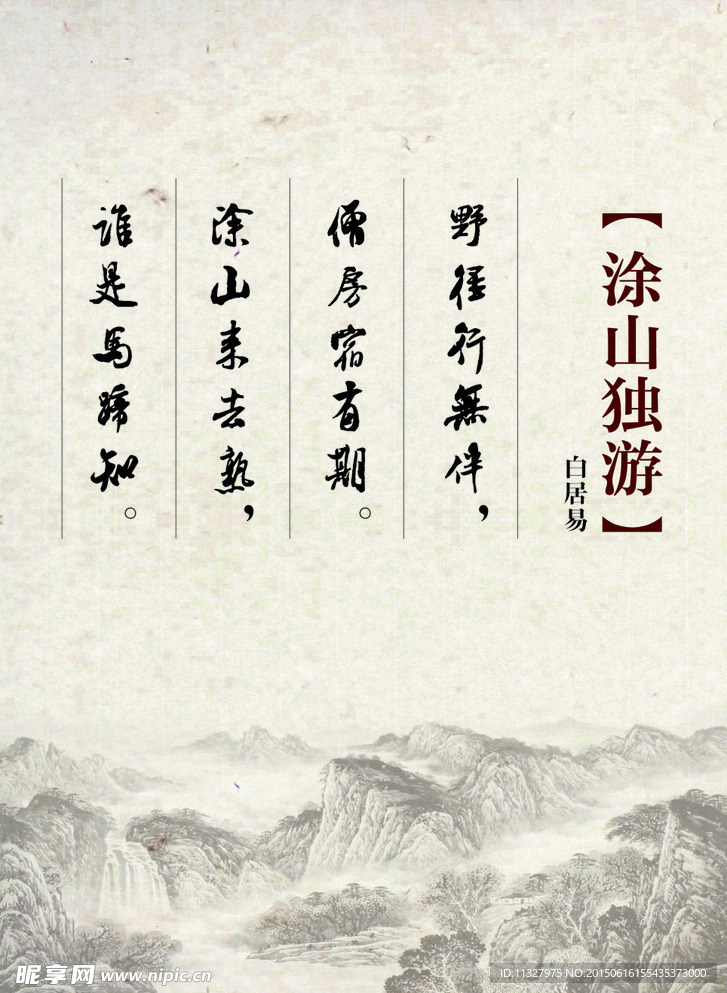 【涂山独游】
白居易
野径行無伴，
僧房宿有期。
涂山来去熟，
谁是馬蹄知。
昵享网 www.nipic.cn
ID:11327975 NO:20150616155435373000